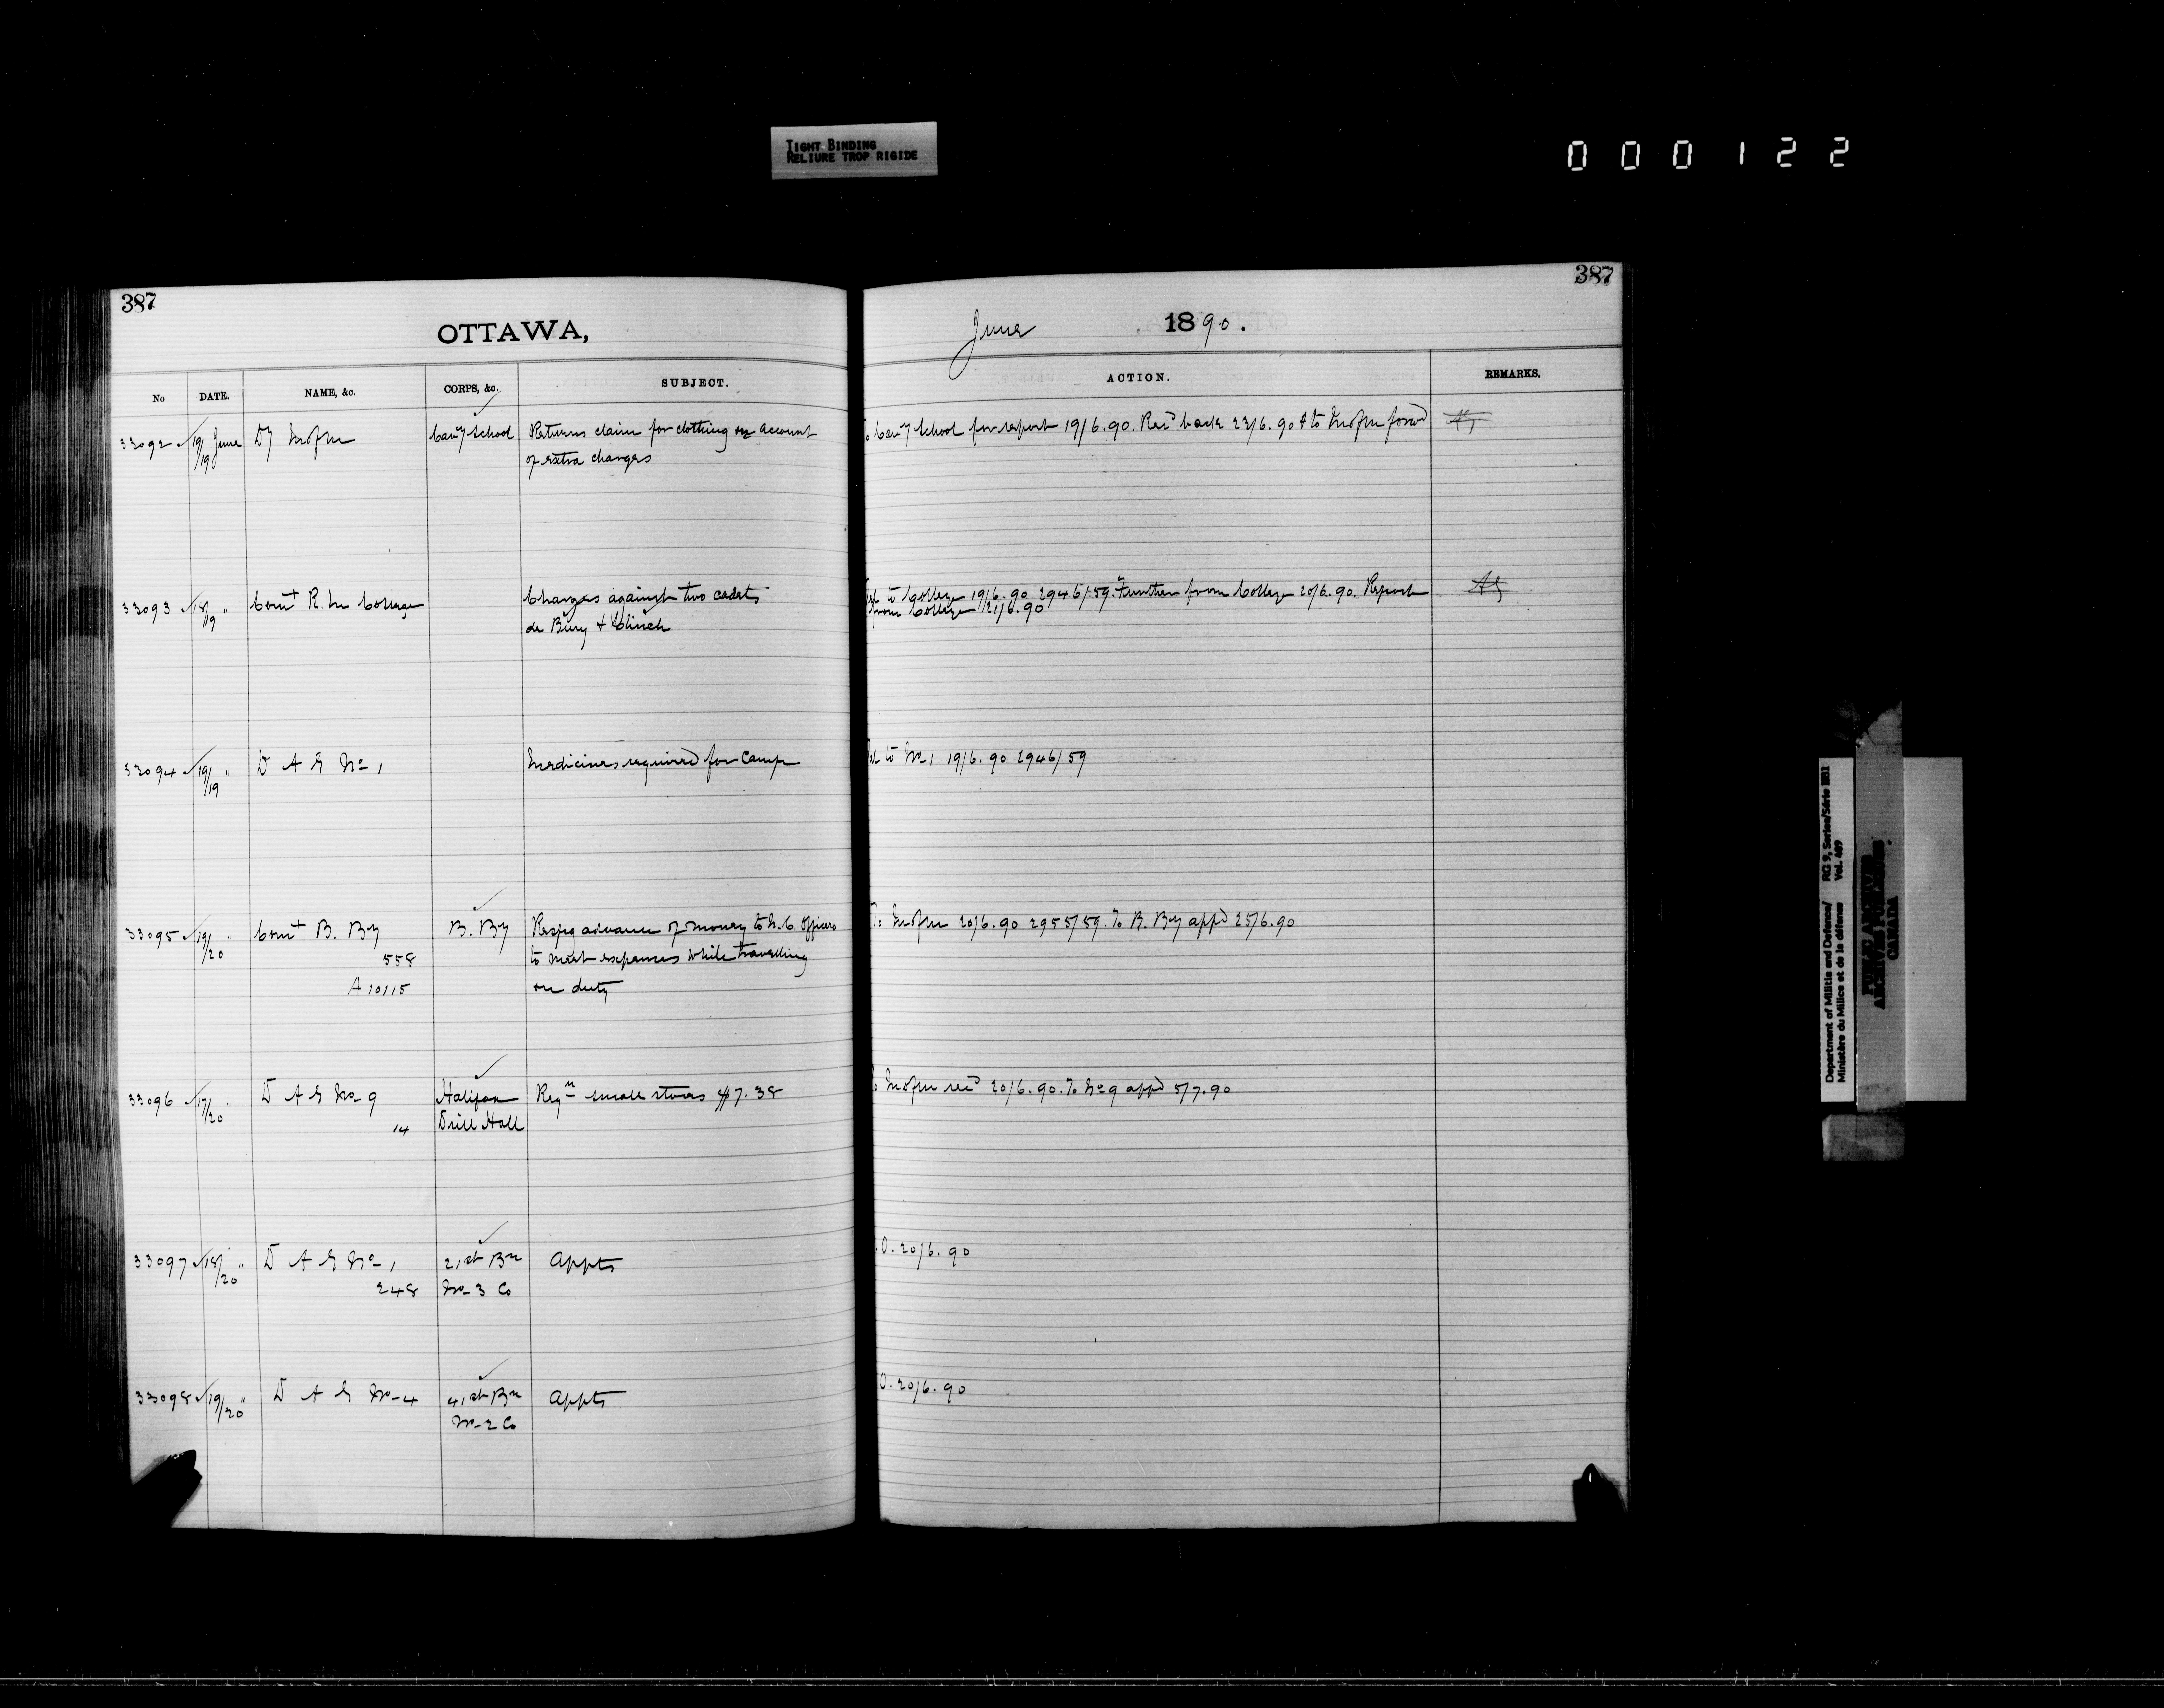 TIGHT BINDING
RELIURE TROP RIGIDE
000122
387
387
OTTAWA,
June 1890.
No DATE. NAME, &c. CORPS, &c. SUBJECT. ACTION. REMARKS.
33092 19/19 June Dy M of M Cavy School Returns claim for clothing on account
of extra charges
To Cavy School for report 19/6.90. Recd back 23/6.90 & to M of M forwd
33093 18/19 " Comt R. M College Charges against two cadets
de Bury & Clinch
Tel to College 19/6.90 2946/59. Further from College 20/6.90. Report
from College 21/6.90
33094 19/19 " D A G No 1 Medicines required for Camp
Tel to No 1 19/6.90 2946/59
33095 19/20 " Comt B. By B. By Respg advance of money to N.C. Officers
558 to meet expenses while travelling
A 10115 on duty
To M of M 20/6.90 2955/59. To B. By appd 25/6.90
33096 17/20 " D A G No 9 Halifax Reqn small stores $7.38
14 Drill Hall
To M of M recd 20/6.90. To No 9 appd 5/7.90
33097 18/20 " D A G No 1 21st Bn Appts
248 No 3 Co
O. 20/6.90
33098 19/20 " D A G No 4 41st Bn Appts
No 2 Co
O. 20/6.90
Department of Militia and Defence/ RG 9, Series/Série IIB1
Ministère du Milice et de la défense Vol. 489
PUBLIC ARCHIVES
ARCHIVES PUBLIQUES
CANADA